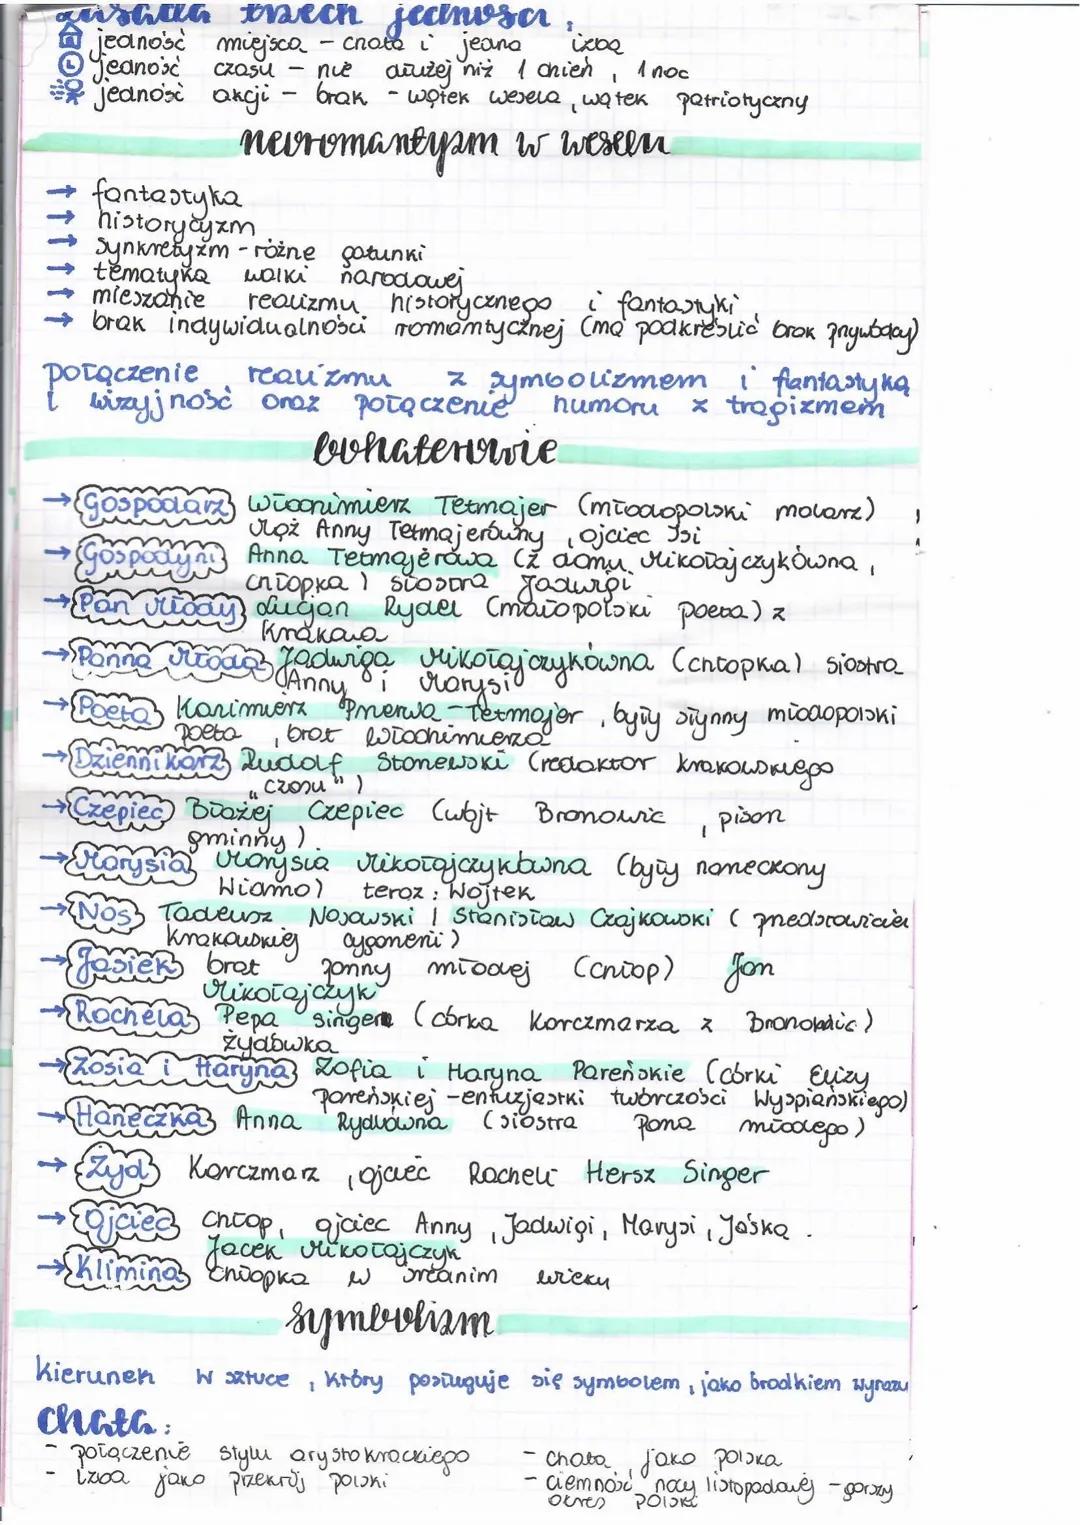 zasada trzech jedności:
jedność miejsca - chata i jedna izba
jedność czasu - nie dłużej niż 1 dzień, 1 noc
jedność akcji - brak - wątek wesela, wątek patriotyczny
neoromantyzm w weselu
→ fantastyka
→ historycyzm
→ synkretyzm - różne gatunki
→ tematyka walki narodowej
→ mieszanie realizmu historycznego i fantastyki
→ brak indywidualności romantycznej (ma podkreślić brak przywódcy)
połączenie realizmu z symbolizmem i fantastyką
i wizyjność oraz połączenie humoru z tragizmem
bohaterowie
→ Gospodarz Włodzimierz Tetmajer (młodopolski malarz)
mąż Anny Tetmajerówny, ojciec Isi
→ Gospodyni Anna Tetmajerowa (z domu Mikołajczykówna,
chłopka) siostra Jadwigi
→ Pan Młody Lucjan Rydel (małopolski poeta) z
Krakowa
→ Panna Młoda Jadwiga Mikołajczykówna (chłopka) siostra
Anny i Marysi
→ Poeta Kazimierz Przerwa-Tetmajer, były słynny młodopolski
poeta, brat Włodzimierza
→ Dziennikarz Rudolf Stonewski (redaktor krakowskiego
"Czasu")
→ Czepiec Błażej Czepiec (wójt Bronowic, pisarz
gminny)
→ Marysia Marysia Mikołajczykówna (były narzeczony
Wiamo) teraz: Wojtek
→ Nos Tadeusz Nosowski / Stanisław Czajkowski (przedstawiciel
krakowskiej cyganerii)
→ Jasiek brat panny młodej (chłop) Jan
Mikołajczyk
→ Rachela Pepa Singer (córka karczmarza z Bronowic)
żydówka
→ Zosia i Haryna Zofia i Maryna Pareńskie (córki Elizy
Pareńskiej - entuzjastki twórczości Wyspiańskiego)
→ Haneczka Anna Rydlówna (siostra pana młodego)
→ Żyd Karczmarz, ojciec Racheli Hersz Singer
→ Ojciec Chłop, ojciec Anny, Jadwigi, Marysi, Jaśka.
Jacek Mikołajczyk
→ Klimina Chłopka w średnim wieku
symbolizm
kierunek w sztuce, który posługuje się symbolem, jako środkiem wyrazu
chata:
- połączenie stylu arystokrackiego
- izba jako przekrój polski
- chata jako polska
- ciemność nocy listopadowej - gorszy
okres polski